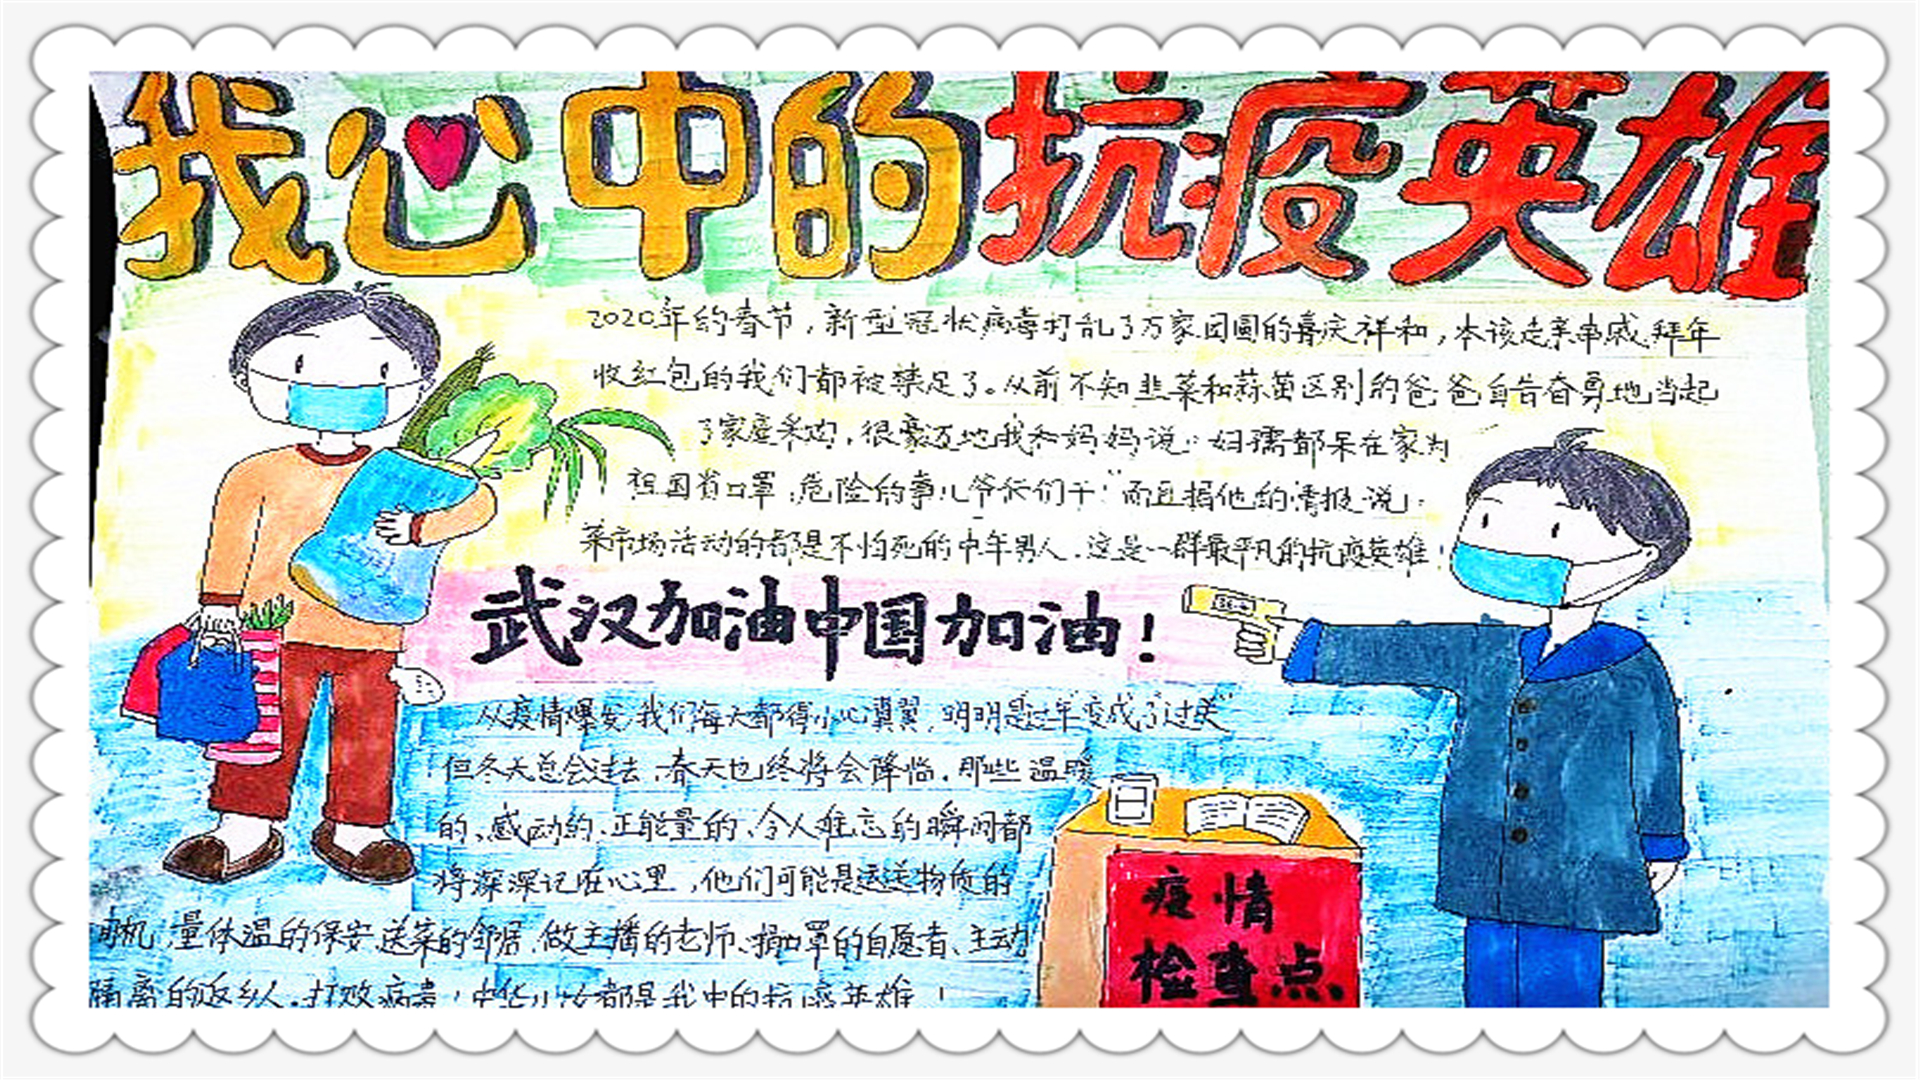 我心中的抗疫英雄
2020年的春节,新型冠状病毒打乱了万家团圆的喜庆祥和,本该走亲串戚,拜年
收红包的我们都被禁足了。从前不知韭菜和蒜苗区别的爸爸自告奋勇地当起
了家庭采购,很豪迈地我和妈妈说:妇孺都呆在家为
祖国省口罩,危险的事儿爷们干!"而且据他的情报说,
菜市场活动的都是不怕死的中年男人.这是一群最平凡的抗疫英雄!
武汉加油中国加油!
36.4
从疫情爆发,我们每天都得小心翼翼,明明是过年变成了过关"
但冬天总会过去,春天也终将会降临.那些温暖
的、感动的、正能量的、令人难忘的瞬间都
将深深记在心里,他们可能是运送物质的
司机,量体温的保安,送菜的邻居,做主播的老师、捐口罩的自愿者、主动
隔离的返乡人.打败病毒!中华儿女都是我中的抗疫英雄!
疫情
检查点